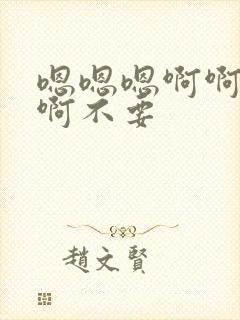 嗯嗯嗯啊啊
啊不要
趙文賢